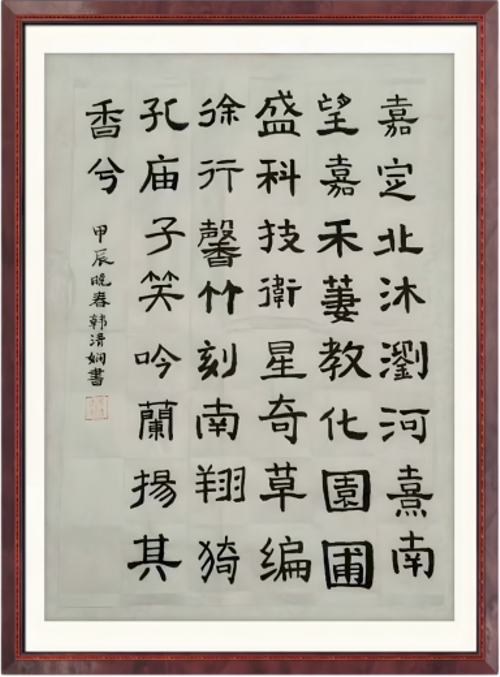 嘉定北沐瀏河熹南
望嘉禾萋教化園圃
盛科技衛星奇草编
徐行馨竹刻南翔猗
孔庙子笑吟蘭揚其
香兮
甲辰晚春韩清娴書